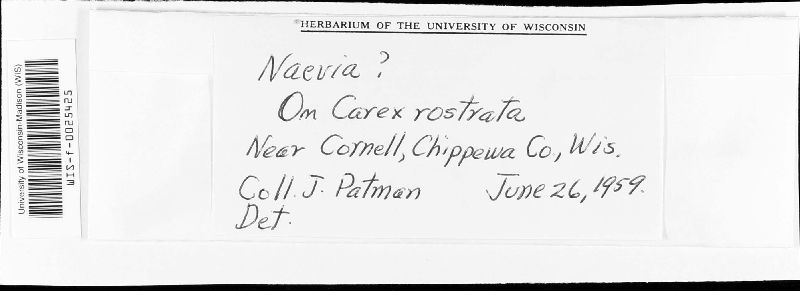 HERBARIUM OF THE UNIVERSITY OF WISCONSIN
Naevia ?
On Carex rostrata
Near Cornell, Chippewa Co., Wis.
Coll. J. Patman June 26, 1959.
Det.
University of Wisconsin-Madison (WIS)
WIS-f-0025425